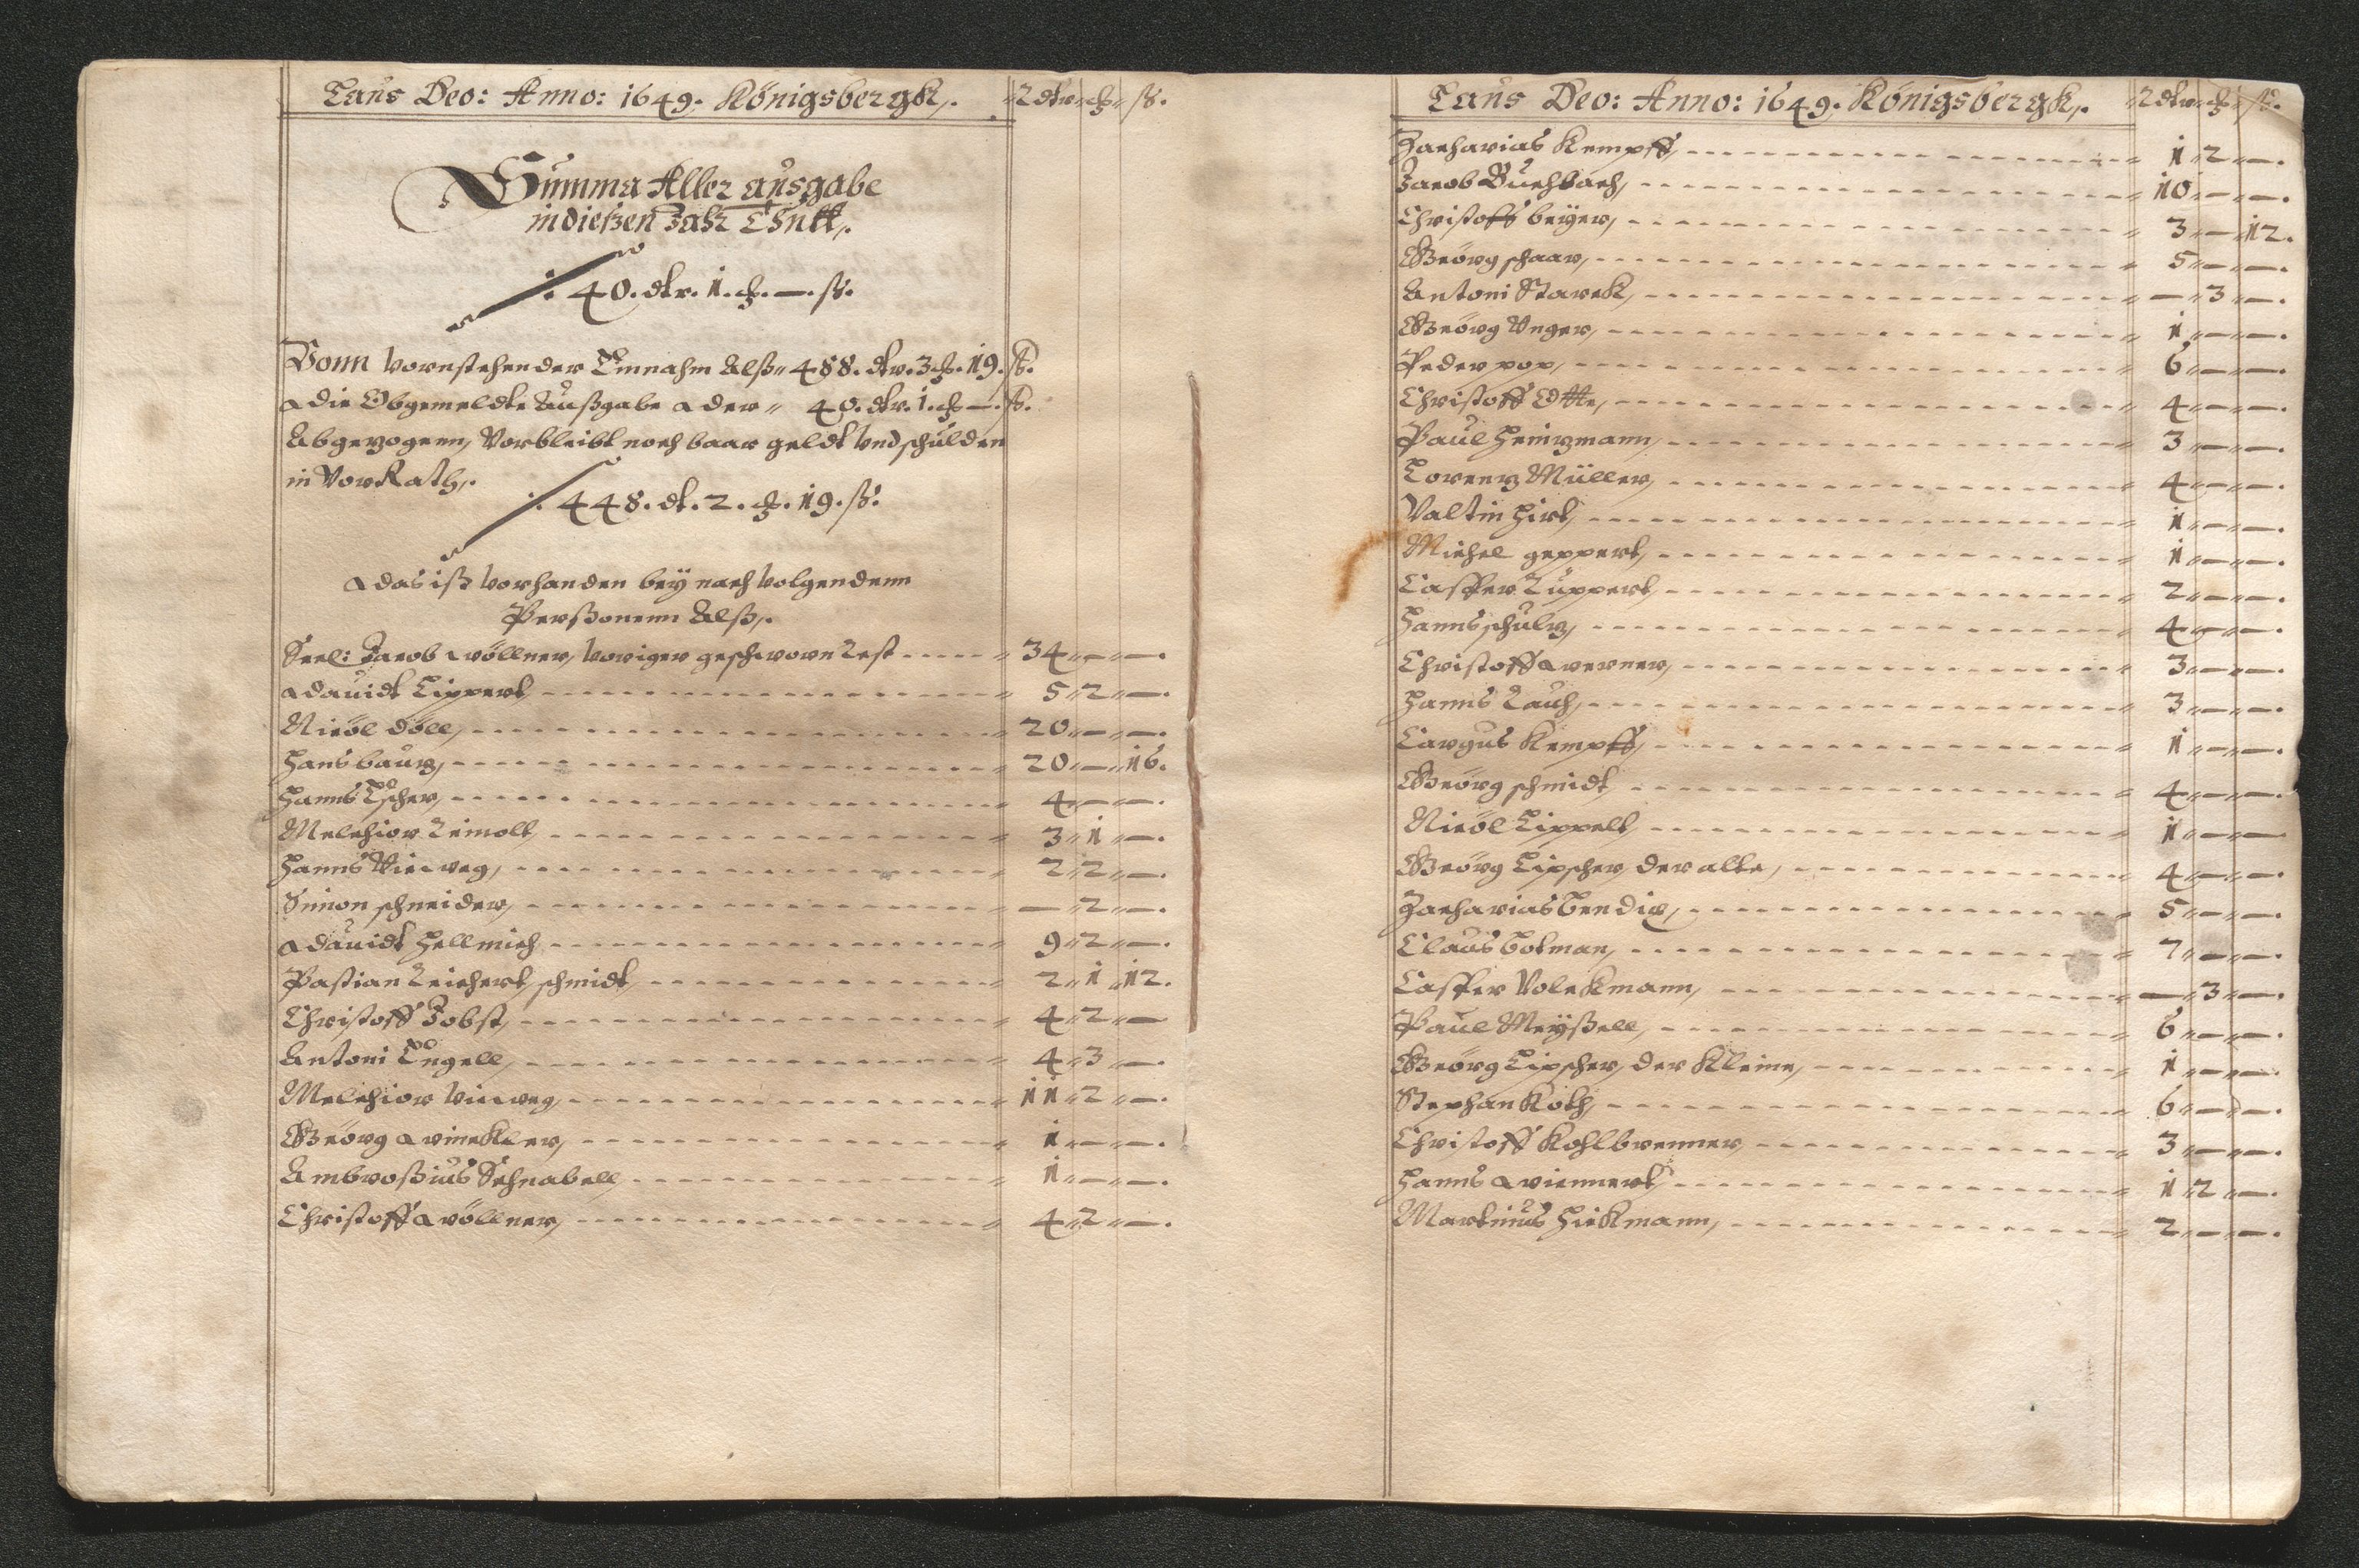 Laus Deo: Anno: 1649. Königsbergk,. Rdtr. ch. ß.
Summa Aller ausgabe
in dießen Jahr Thutt,.
./. 40. dtr. 1. ch. —. ß.
Vonn vornstehender Einnahm Alß 488. dtr. 3 ch. 19. ß.
die Obgemeldte Außgabe der 40. dtr. 1. ch. —. ß.
Abgezogenn, Vorbleibt noch baar geldt Vnd schulden
in VorRath,.
./. 448. dt. 2. ch. 19. ß.
das iß vorhanden bey nach volgendenn
Perßonenn Alß,.
Seel: Jacob Wöllner, voriger geschworn Rest 34 — —.
Dauidt Lippert 5 2 —.
Nicöl Döll, 20 — —.
Hans baurz, 20 — 16.
Hanns Escher, 4 — —.
Melchior Reimolt, 3 1 —.
Hanns Vieweg, 2 2 —.
Simon schneider, — 2 —.
Dauidt Hellmich 9 2 —.
Pastian Reichert, schmidt, 2 1 12.
Christoff Jobst, 4 2 —
Antoni Engell, 4 3 —.
Melchior Vieweg, 11 2 —.
Geörg Winckler, 1 — —.
Ambroßius Schnabell, 1 — —.
Christoff Wöllner, 4 2 —.
Laus Deo: Anno: 1649. Königsbergk,. Rdtr. ch. ß.
Zacharias Kempff, 1 2 —.
Jacob Buchbach, 10 — —.
Christoff beyer, 3 — 12.
Geörg schaar, 5 — —.
Antoni Starck, — 3 —.
Geörg Vnger, 1 — —.
Peder pop, 6 — —.
Christoff Otte, 4 — —.
Paul Heinzmann, 3 — —.
Lorenz Müller, 4 — —.
Valtin Hirt, 1 — —.
Michel geppert, 1 — —.
Casper Ruppert, 2 — —.
Hanns schulz, 4 — —.
Christoff Werner, 3 — —.
Hanns Rauh, 3 — —.
Cargus Kempff, 1 — —.
Geörg schmidt, 4 — —.
Nicöl Lippelt, 1 — —
Geörg Lipscher, der alte, 4 — —.
Zacharias Bendix, 5 — —.
Claus Botman, 7 — —.
Casper Volckmann, — 3 —.
Paul Meyßell, 6 — —.
Geörg Lipscher, der Kleine, 1 — —.
Stephan Roth, 6 — —.
Christoff Kohlbrenner, 3 — —.
Hanns Wiennert, 1 2 —.
Martinus Hickmann, 2 — —.